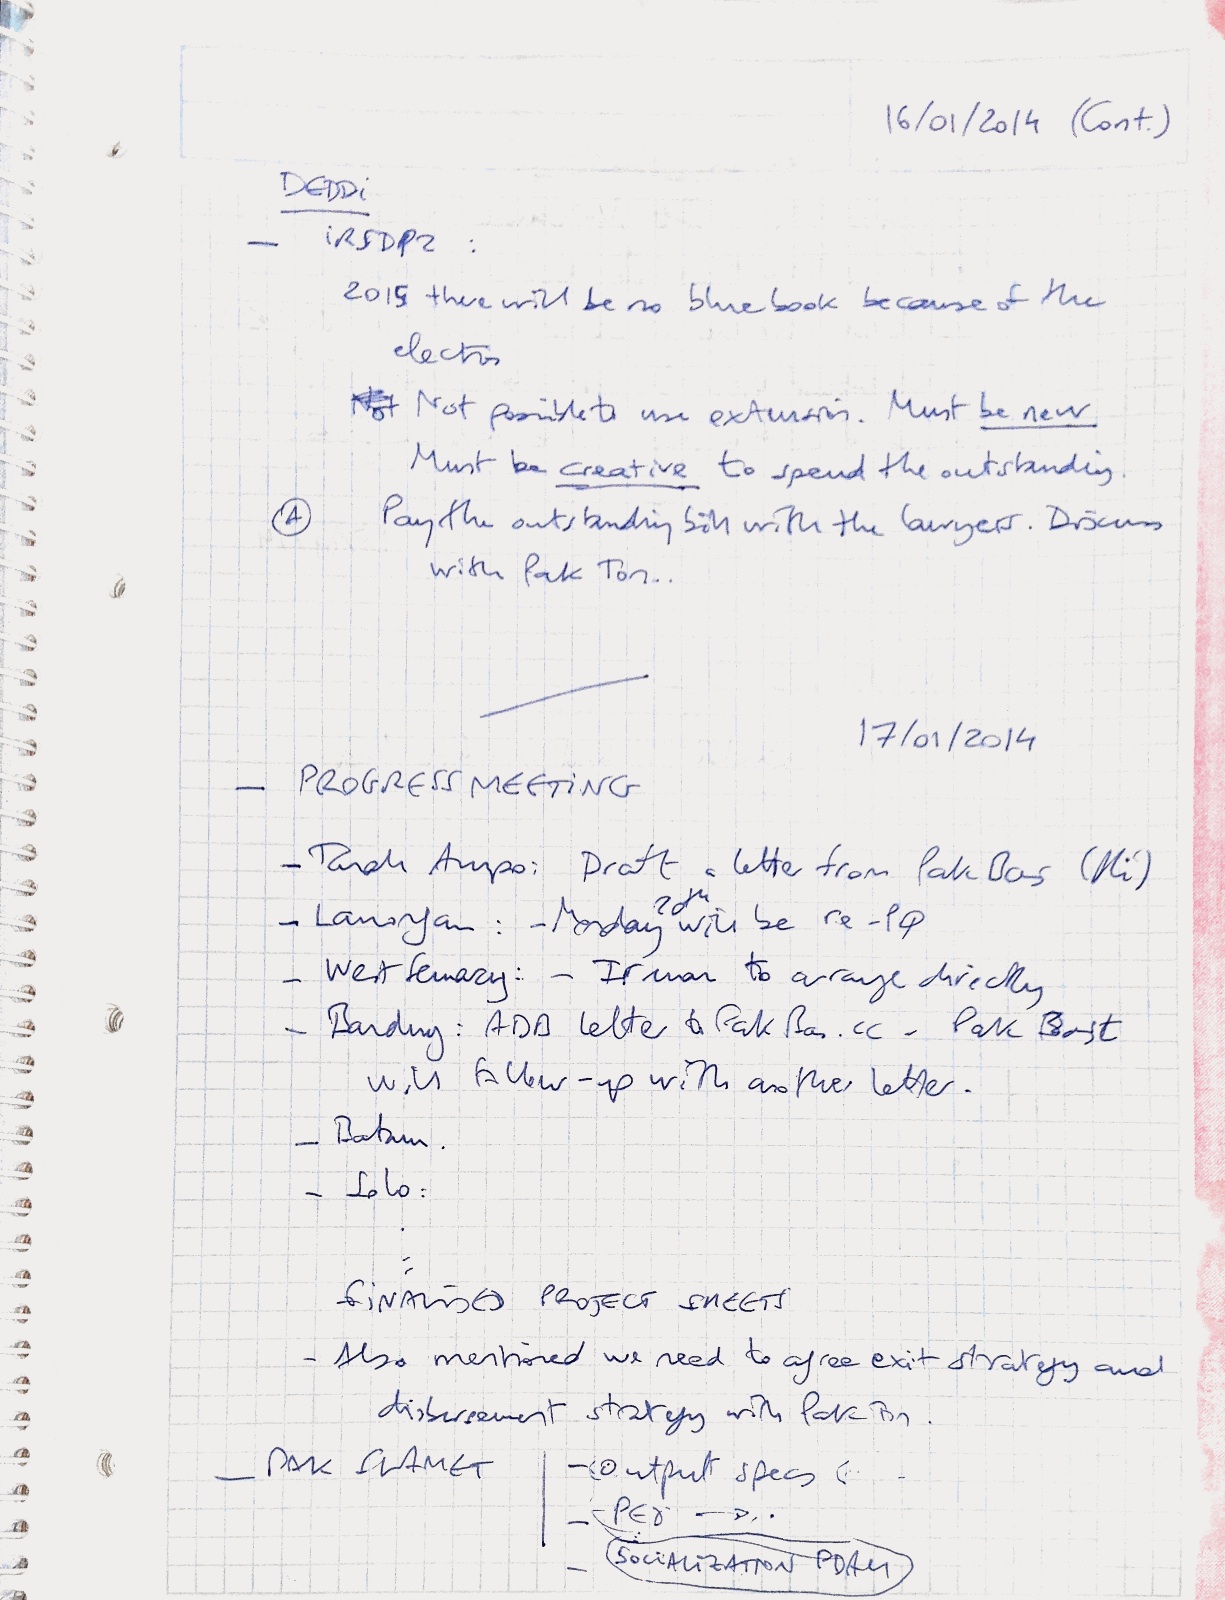 16/01/2014 (Cont.)
DEDDi
– iRSDP2 :
2015 there will be no blue book because of the
election
Not Not possible to use extension. Must be new
Must be creative to spend the outstanding.
(A) Pay the outstanding bill with the lawyers. Discuss
with Pak Ton..
17/01/2014
– PROGRESS MEETING
– : Draft a letter from Pak Bas
– Lamongan : – Monday 20th will be re-PQ
– West Semarang : – Irman to arrange directly
– Bandung : ADB letter to Pak Bas. cc – Pak
will follow-up with another letter.
– Batam.
– Solo :
FINALISED PROJECT SHEETS
– Also mentioned we need to agree exit strategy and
disbursement strategy with Pak
– PAK SLAMET
– Output specs (
–
– SOCIALIZATION PDAM